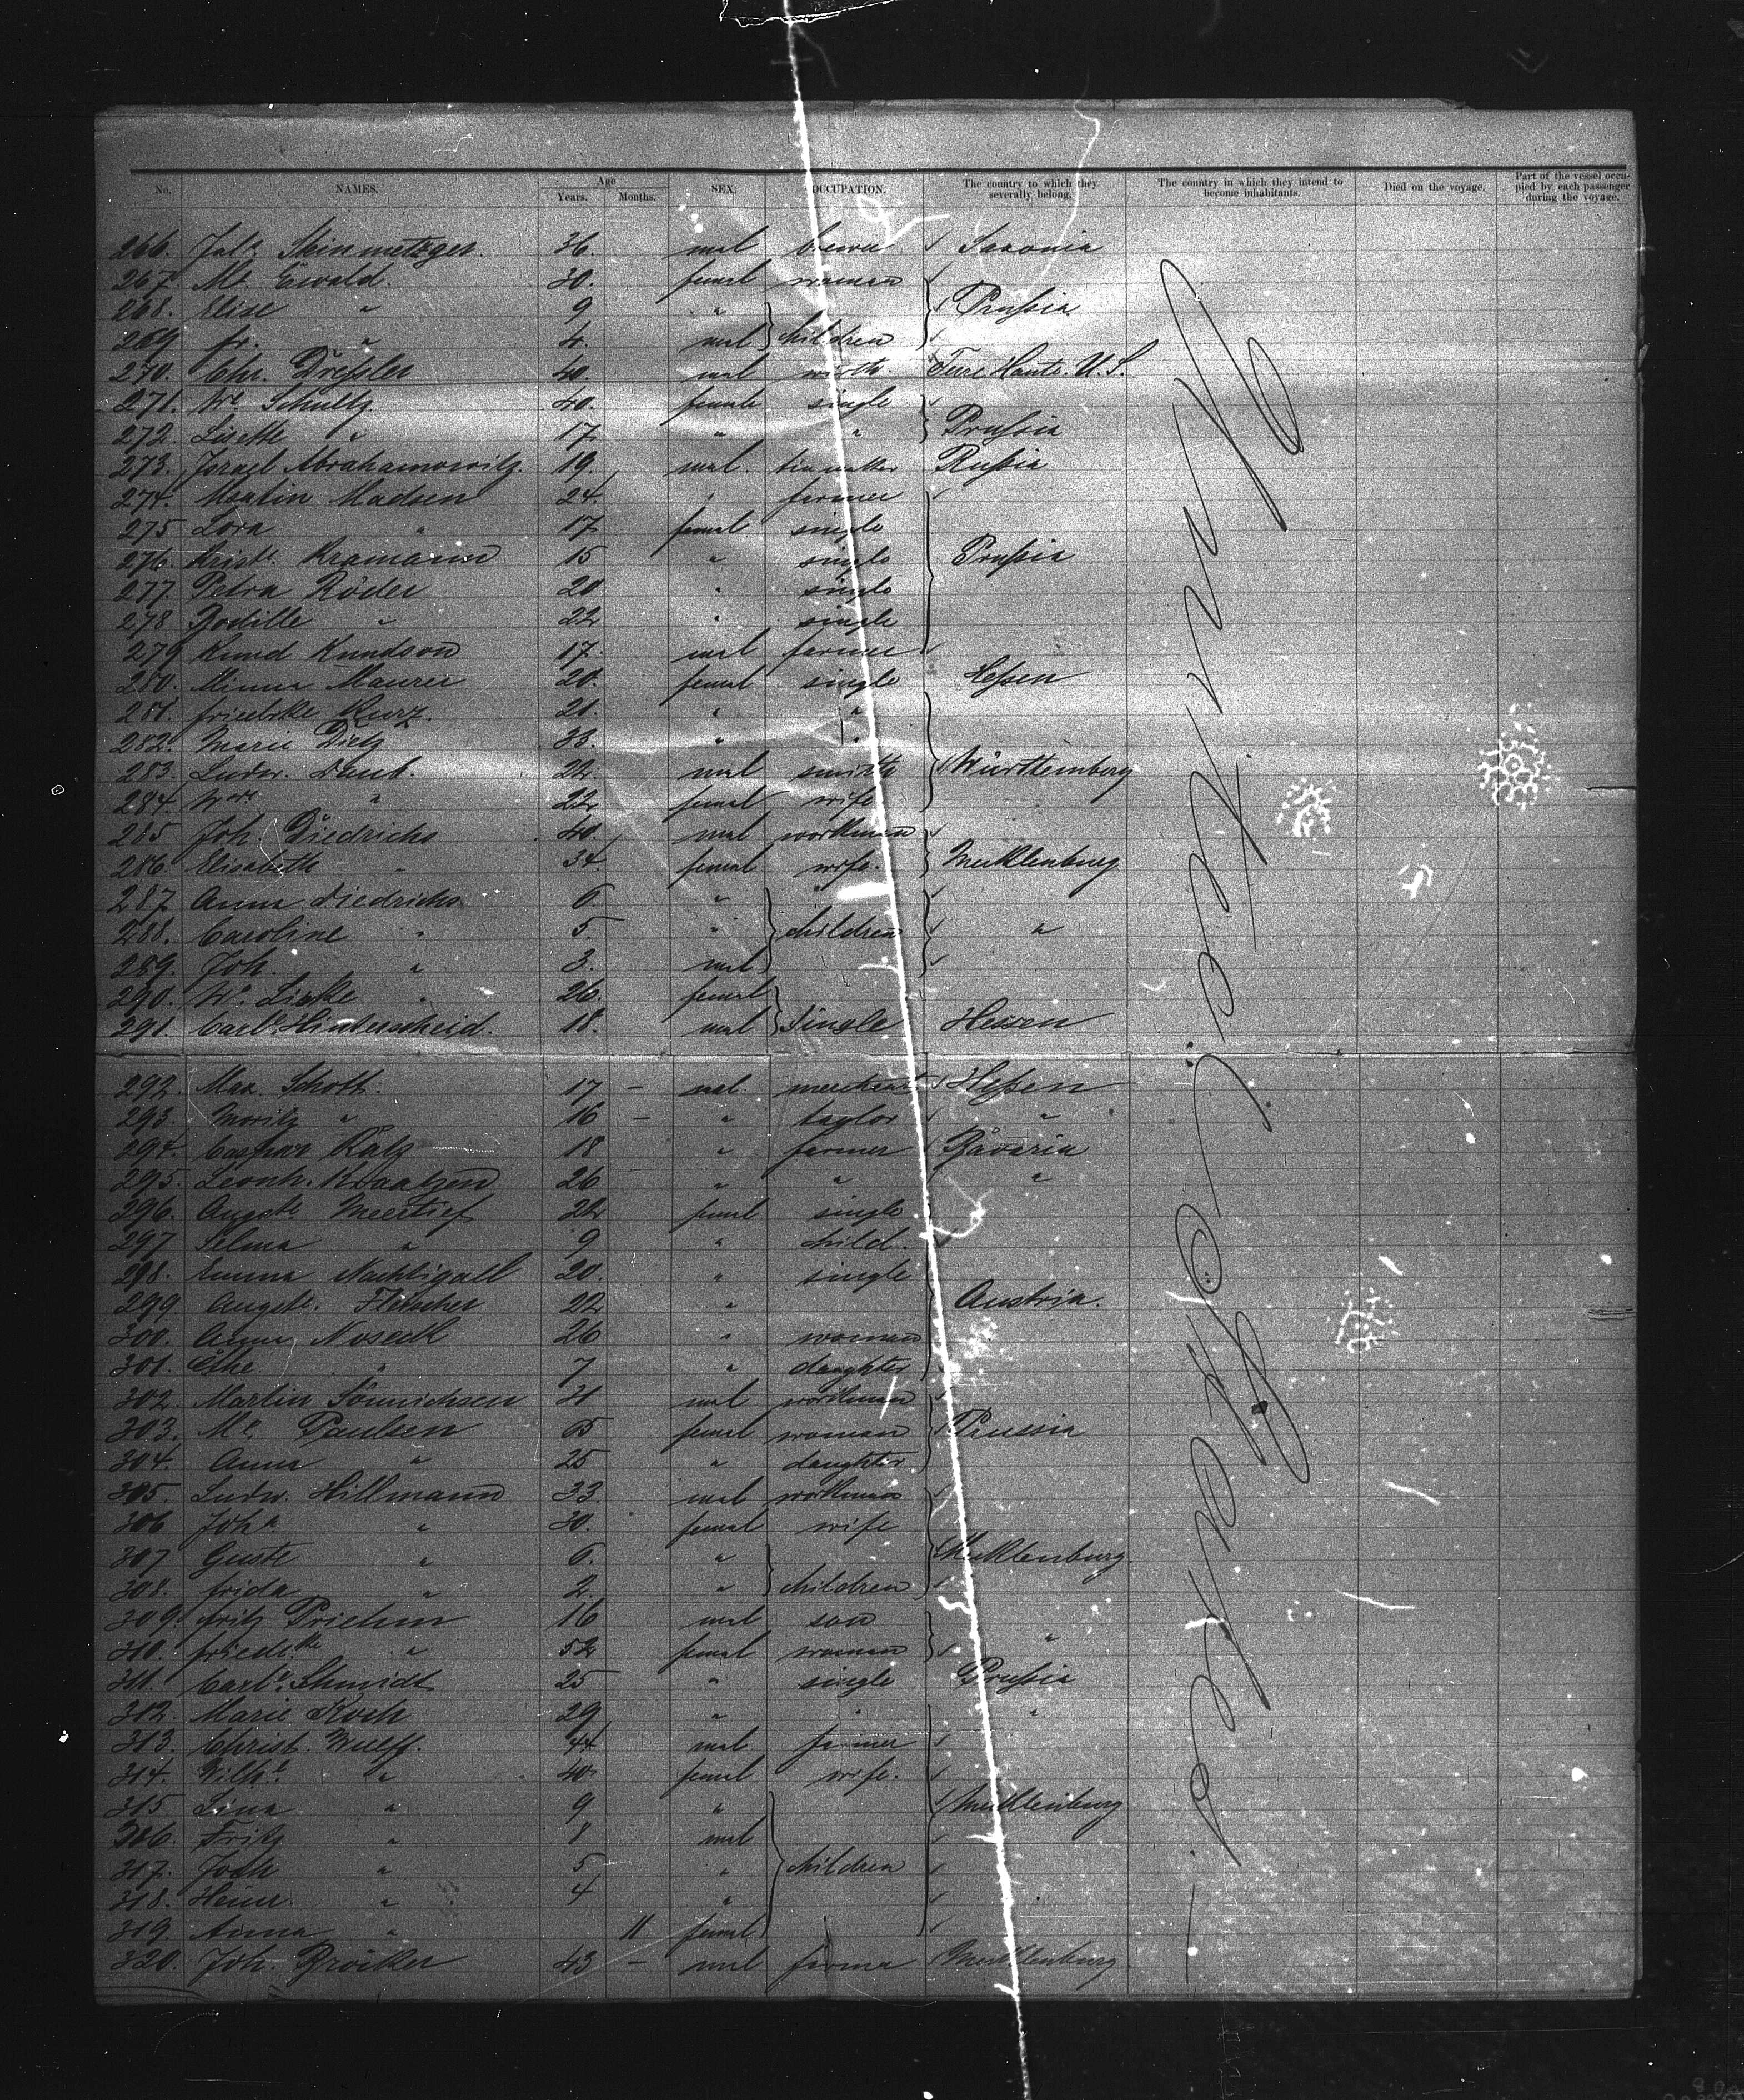 No. NAMES. Age Years. Months. SEX. OCCUPATION. The country to which they severally belong. The country in which they intend to become inhabitants. Died on the voyage. Part of the vessel occupied by each passenger during the voyage.
266. Steinmetzger. 36. mal Saxonia
267. Ewald. 30. femal woman
268. Elise " 9 " Prussia
269 fr. " 4. mal children
270. Chr. Dressler 40. mal Terre Haute. U.S.
271. Schultz 40. female single
272. Lisette " 17. " " Prussia
273. Israel Abrahamowitz. 19. mal. Russia
274. Martin Madsen 24. " farmer
275 Lora " 17. femal single
276. Krist. Kramann 15 " single Prussia
277. Petra Röder 20 " single
278 Bodille " 22 " single
279 Knud Knudson 17. mal farmer
280. Minna Maurer 20. femal single Hessen
281. friedrke Kurz. 21. " "
282. Marie Dietz 33. " "
283. Ludw. Daub. 22. mal smith Württemberg
284. " 22 femal wife
285 Joh. Diedrichs 40. mal workman
286. Elisabeth " 34. femal wife. Mecklenburg
287. Anna Diedrichs 6. "
288. Caroline " 5. " children "
289. Joh. " 3. mal
290. 26. femal
291. Carl. Hinterscheid. 18. mal single Hessen
292. Max. Schott. 17 — mal. merchant Hessen
293. Moritz " 16 — " taylor "
294. Caspar Katz 18 " farmer Bavaria
295. Leonh. Kraatzen 26 " " "
296. Augste. 22 femal single
297 Selma " 9 " child.
298. Emma Nachtigall 20. " single
299 Augste. Fleischer 22 " Austria.
300. Anna 26 " woman
301. " 7 " daughter
302. Martin Sönnichsen 31 mal workman
303. Paulsen 65 femal woman Prussia
304. Anna " 25 " daughter
305. Ludw. Hillmann 33. mal workman
306 Joha " 30. femal wife
307 Guste " 6. " Mecklenburg
308. frida " 2. " children
309. fritz Priehm 16 mal son
310. friedke " 52 femal woman "
311. Carle. Schmidt 25 " single Prussia
312. Marie Koch 29 " " "
313. Christ. Wulff. 44 mal farmer
314. Wilhe " 40. femal wife.
315 Lina " 9 " Mecklenburg
316. Fritz " 8 mal
317. Joch " 5 " children
318. Heinr. " 4 "
319. Anna " 11 femal
320. Joh. Bröcker 43 — mal farmer Mecklenburg